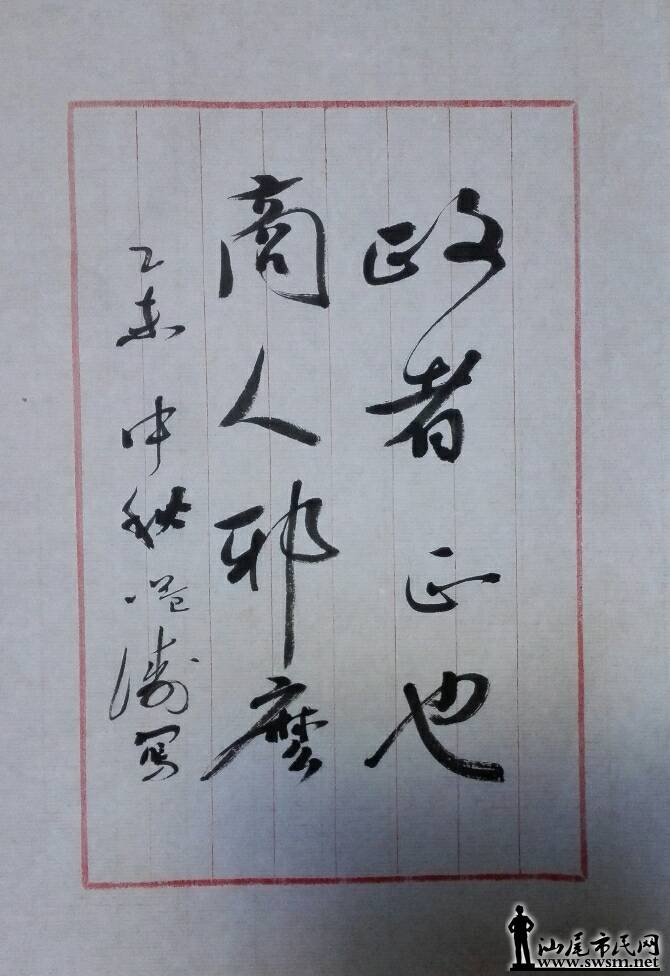 政者正也
商人邪麽
乙未中秋溢涛写
汕尾市民网
www.swsm.net